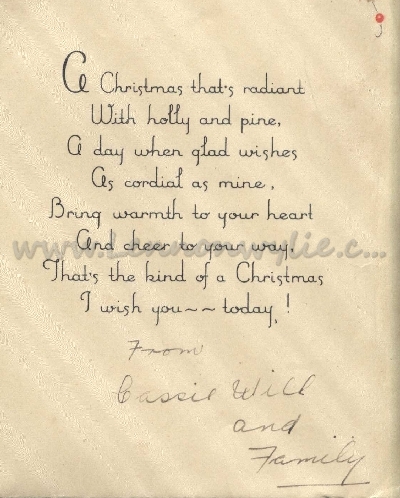 A Christmas that's radiant
With holly and pine,
A day when glad wishes
As cordial as mine,
Bring warmth to your heart
And cheer to your way,
That's the kind of a Christmas
I wish you~~today!
www.Lennonwylie.c...
From
Cassie Will
and
Family